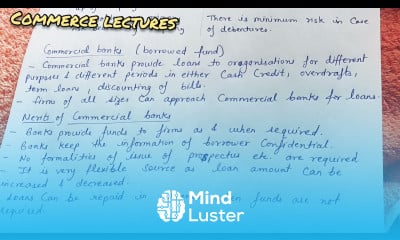 COMMERCE LECTURES
There is minimum risk in case
of debentures.
Commercial banks (borrowed fund)
- Commercial banks provide loans to organisations for different
purposes & different periods in either Cash Credit, overdrafts,
term loans, discounting of bills.
- firms of all sizes Can approach Commercial banks for loans
Merits of Commercial banks
- Banks provide funds to firms as & when required.
- Banks keep the information of borrower Confidential.
- No formalities of issue of prospectus etc. are required
- It is very flexible source as loan amount Can be
increased & decreased.
Loans Can be repaid in funds are not
required
Mind
Luster